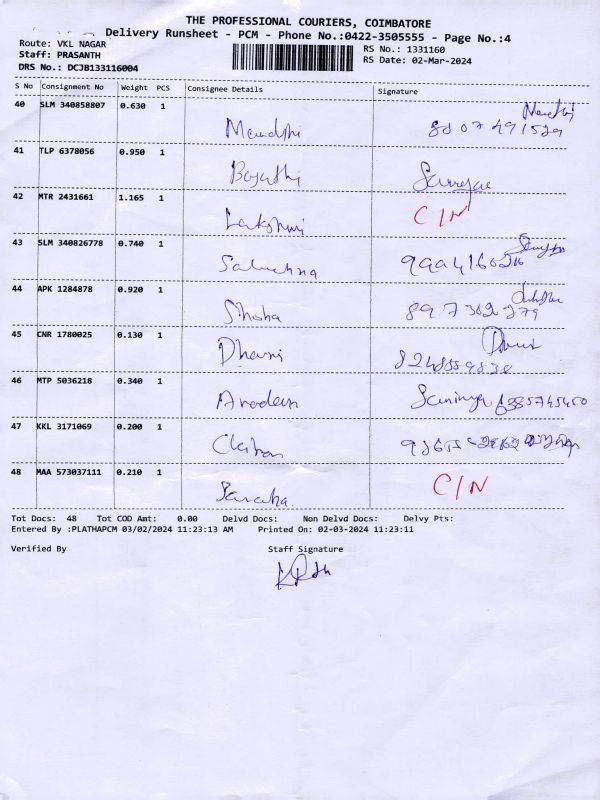 THE PROFESSIONAL COURIERS, COIMBATORE
Delivery Runsheet - PCM - Phone No.:0422-3505555 - Page No.:4
Route: VKL NAGAR
RS No.: 1331160
Staff: PRASANTH
RS Date: 02-Mar-2024
DRS No.: DCJB133116004
S No Consignment No Weight PCS Consignee Details Signature
40 SLM 340858807 0.630 1
8807491529
41 TLP 6378056 0.950 1
42 MTR 2431661 1.165 1 Lakshmi C/N
43 SLM 340826778 0.740 1 Saluchna
44 APK 1284878 0.920 1 Shoba
8973022279
45 CNR 1780025 0.130 1 Dharni
46 MTP 5036218 0.340 1
6385745450
47 KKL 3171069 0.200 1
48 MAA 573037111 0.210 1 C/N
Tot Docs: 48 Tot COD Amt: 0.00 Delvd Docs: Non Delvd Docs: Delvy Pts:
Entered By :PLATHAPCM 03/02/2024 11:23:13 AM Printed On: 02-03-2024 11:23:11
Verified By Staff Signature